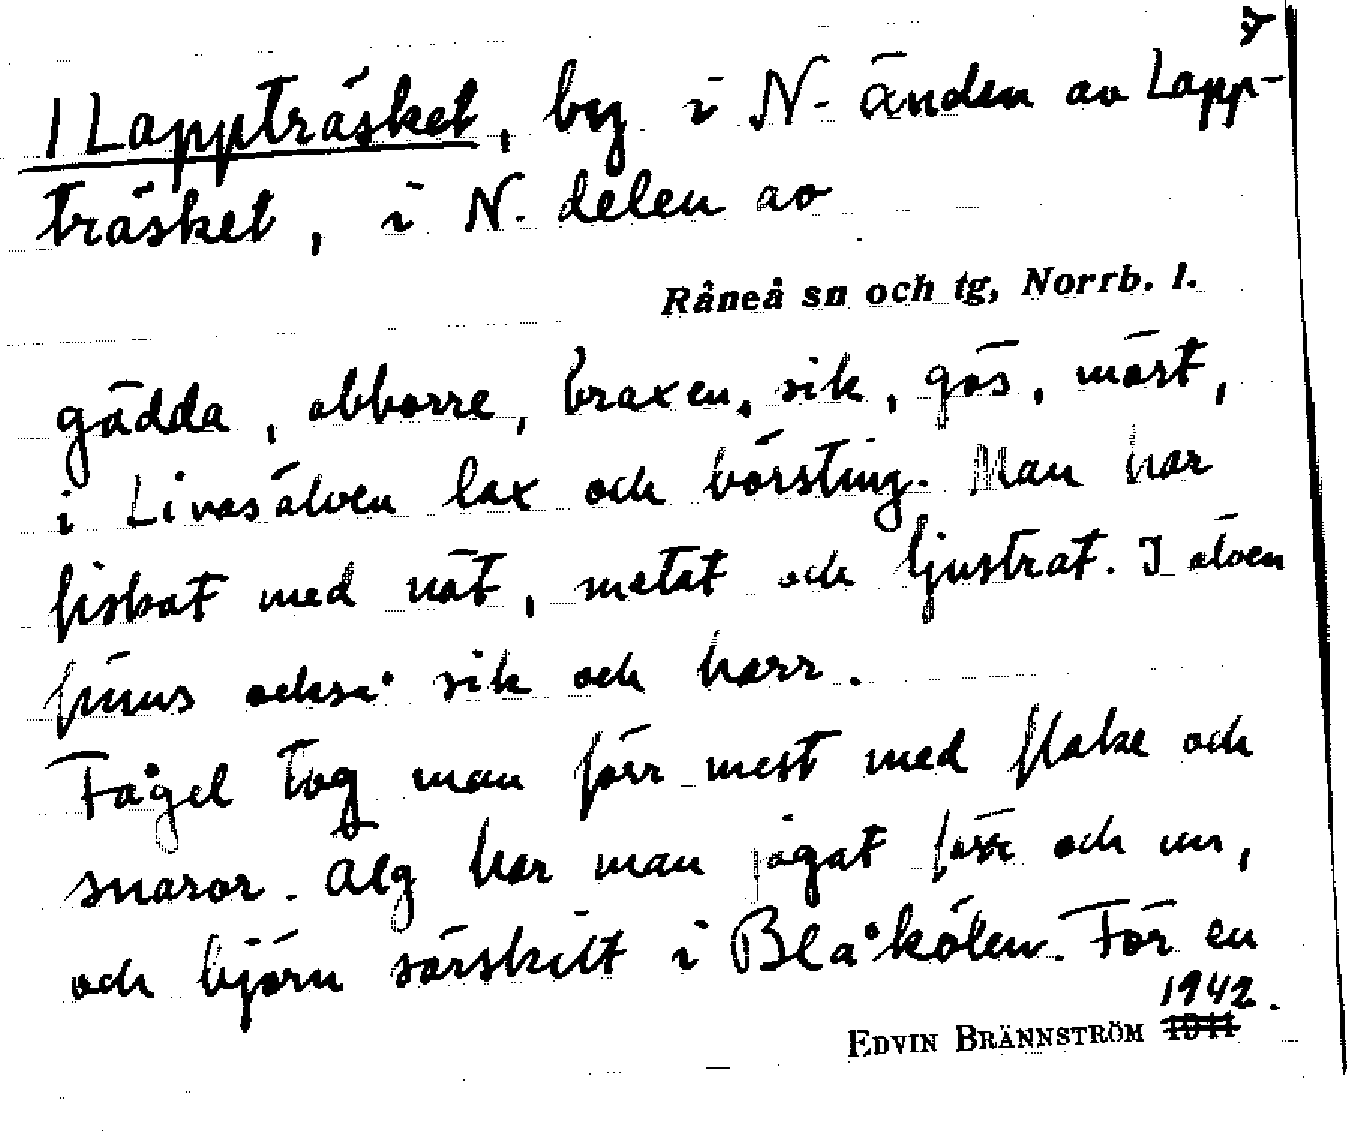 7
1 Lappträsket, by i N. änden av Lapp-
träsket, i N. delen av
Råneå sn och tg, Norrb. l.
gädda, abborre, braxen, sik, gös, mört,
i Livasälven lax och börsting. Man har
fiskat med nät, metat och ljustrat. I älven
finns också sik och harr.
Fågel tog man förr mest med flake och
snaror. Älg har man jagat förr och nu,
och björn särskilt i Blåkölen. För en
1942.
EDVIN BRÄNNSTRÖM 1941